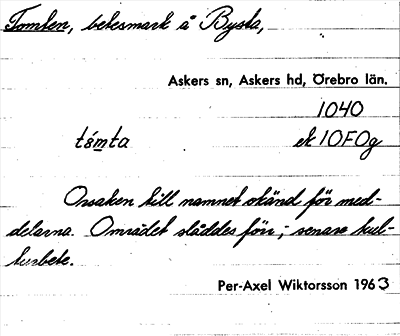 Tomten, betesmark å Bysta,
Askers sn, Askers hd, Örebro län.
1040
támta ek 10F0g
Orsaken till namnet okänd för med-
delarna. Området släddes förr; senare kul-
turbete.
Per-Axel Wiktorsson 1963